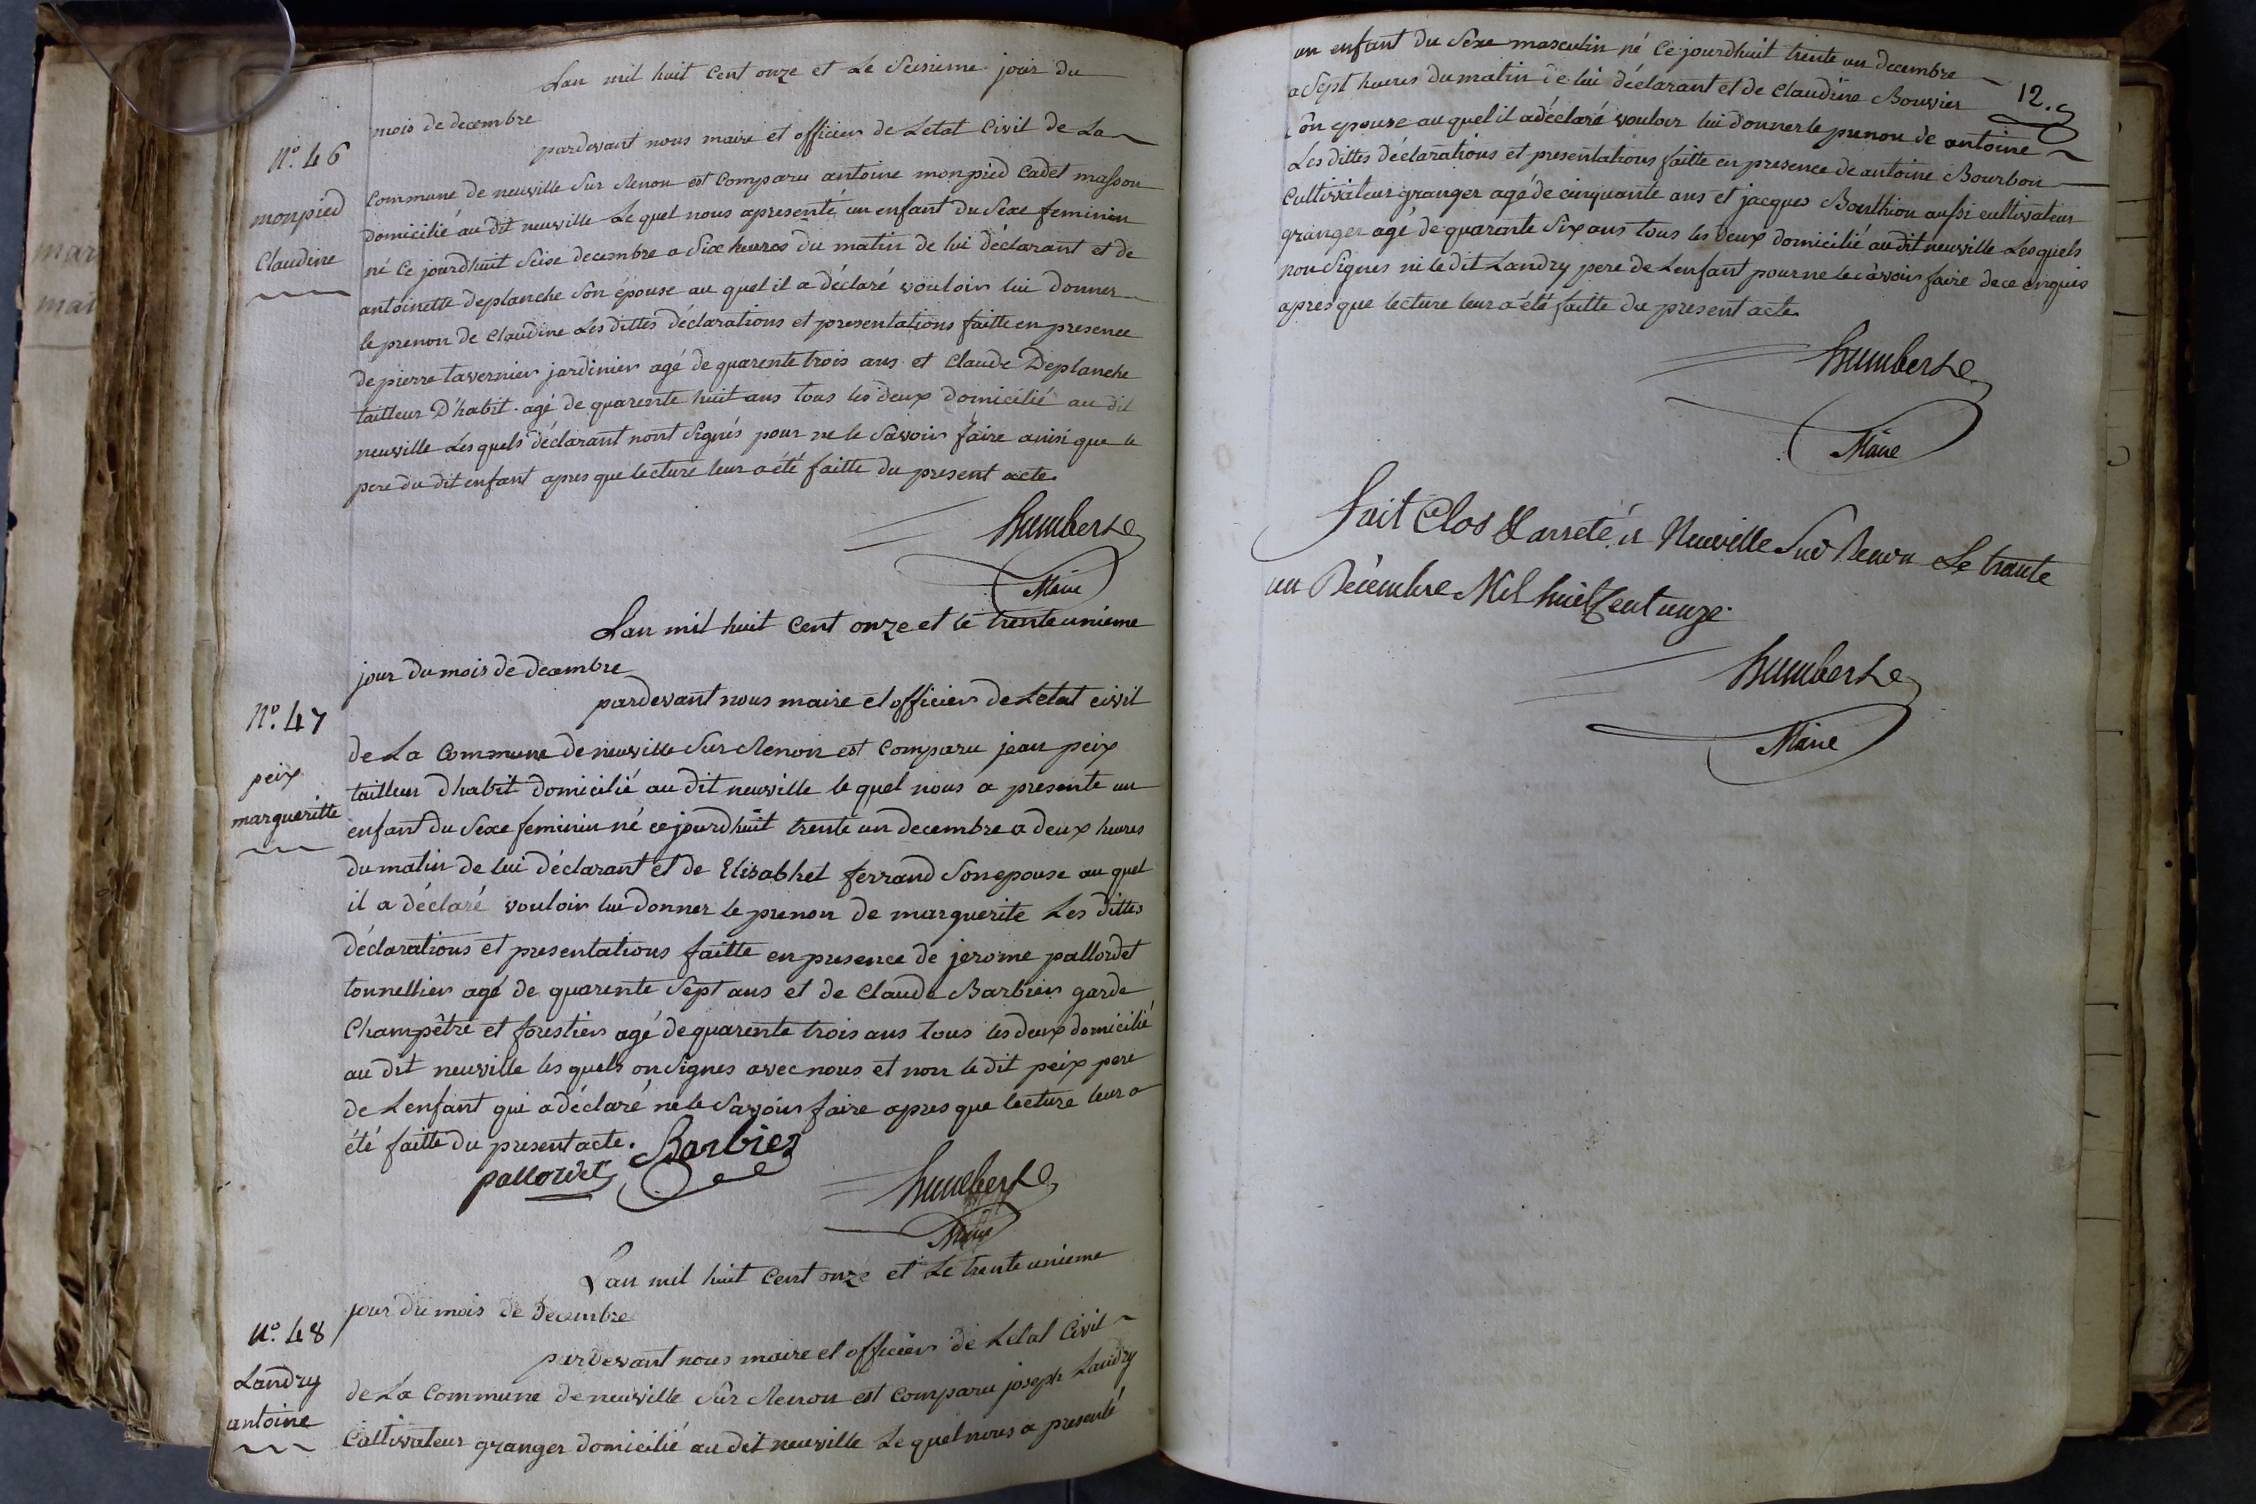 Lan mil huit Cent onze et Le Seisieme jour du
mois de decembre
pardevant nous maire et officier de Letat Civil de La
N°. 46
monpied
Claudine
Commune de neuville Sur Renon est Comparu antoine monpied Cadet masson
domicilié au dit neuville Le quel nous apresenté un enfant du Sexe feminin
né Ce jourdhuit Seise decembre a Six heures du matin de lui déclarant et de
antoinette Deplanche Son épouse au quel il a déclaré vouloir lui donner
le prenon de Claudine Les dittes déclarations et presentations faitte en presence
de pierre tavernier jardinier agé de quarente trois ans et Claude Deplanche
tailleur D'habit agé de quarente huit ans tous les deux domicilié au dit
neuville Les quels déclarant nont Signés pour ne le Savoir faire ainsi que le
pere du dit enfant apres que lecture leur a été faitte du present acte.
humbert
Maire
Lan mil huit Cent onze et le trente unieme
jour du mois de decembre
pardevant nous maire et officier de Letat civil
N°. 47
peix
margueritte
de La Commune de neuville Sur Renon est Comparu jean peix
tailleur dhabit domicilié au dit neuville le quel nous a presente un
enfant du Sexe feminin né ce jourdhuit trente un decembre a deux heures
du matin de lui déclarant et de Elisabhet ferrand Son epouse au quel
il a déclaré vouloir lui donner le prenon de marguerite Les dittes
déclarations et presentations faitte en presence de jerome pallordet
tonnellier agé de quarente Sept ans et de Claude Barbier garde
Champêtre et forestier agé de quarente trois ans tous les deux domicilié
au dit neuville les quels on Signes avec nous et non le dit peix pere
de Lenfant qui a déclaré ne le Savoir faire apres que lecture leur a
été faitte du present acte.
Barbier
pallordet
humbert
Maire
Lan mil huit Cent onze et Le trente unieme
jour du mois de Decembre
pardevant nous maire et officier de Letat Civil
N°. 48
Landry
antoine
de La Commune de neuville Sur Renon est Comparu joseph Landry
Cultivateur granger domicilié au dit neuville Le quel nous a presenté
12.
un enfant du Sexe masculin né Ce jourdhuit trente un decembre
a Sept heures du matin de lui déclarant et de Claudine Bouvier
Son epouse au quel il a déclaré vouloir lui donner le prenon de antoine
Les dittes déclarations et presentations faitte en presence de antoine Bourbon
Cultivateur granger agé de cinquante ans et jacques Berthion aussi cultivateur
granger agé de quarante Six ans tous les deux domicilié au dit neuville Lesquels
non Signes ni le dit Landry pere de Lenfant pour ne le Savoir faire de ce enquis
apres que lecture leur a été faitte du present acte.
humbert
Maire
Fait Clos & arreté à Neuville Sur Renon Le trante
un Décembre Mil huit Cent onze.
humbert
Maire